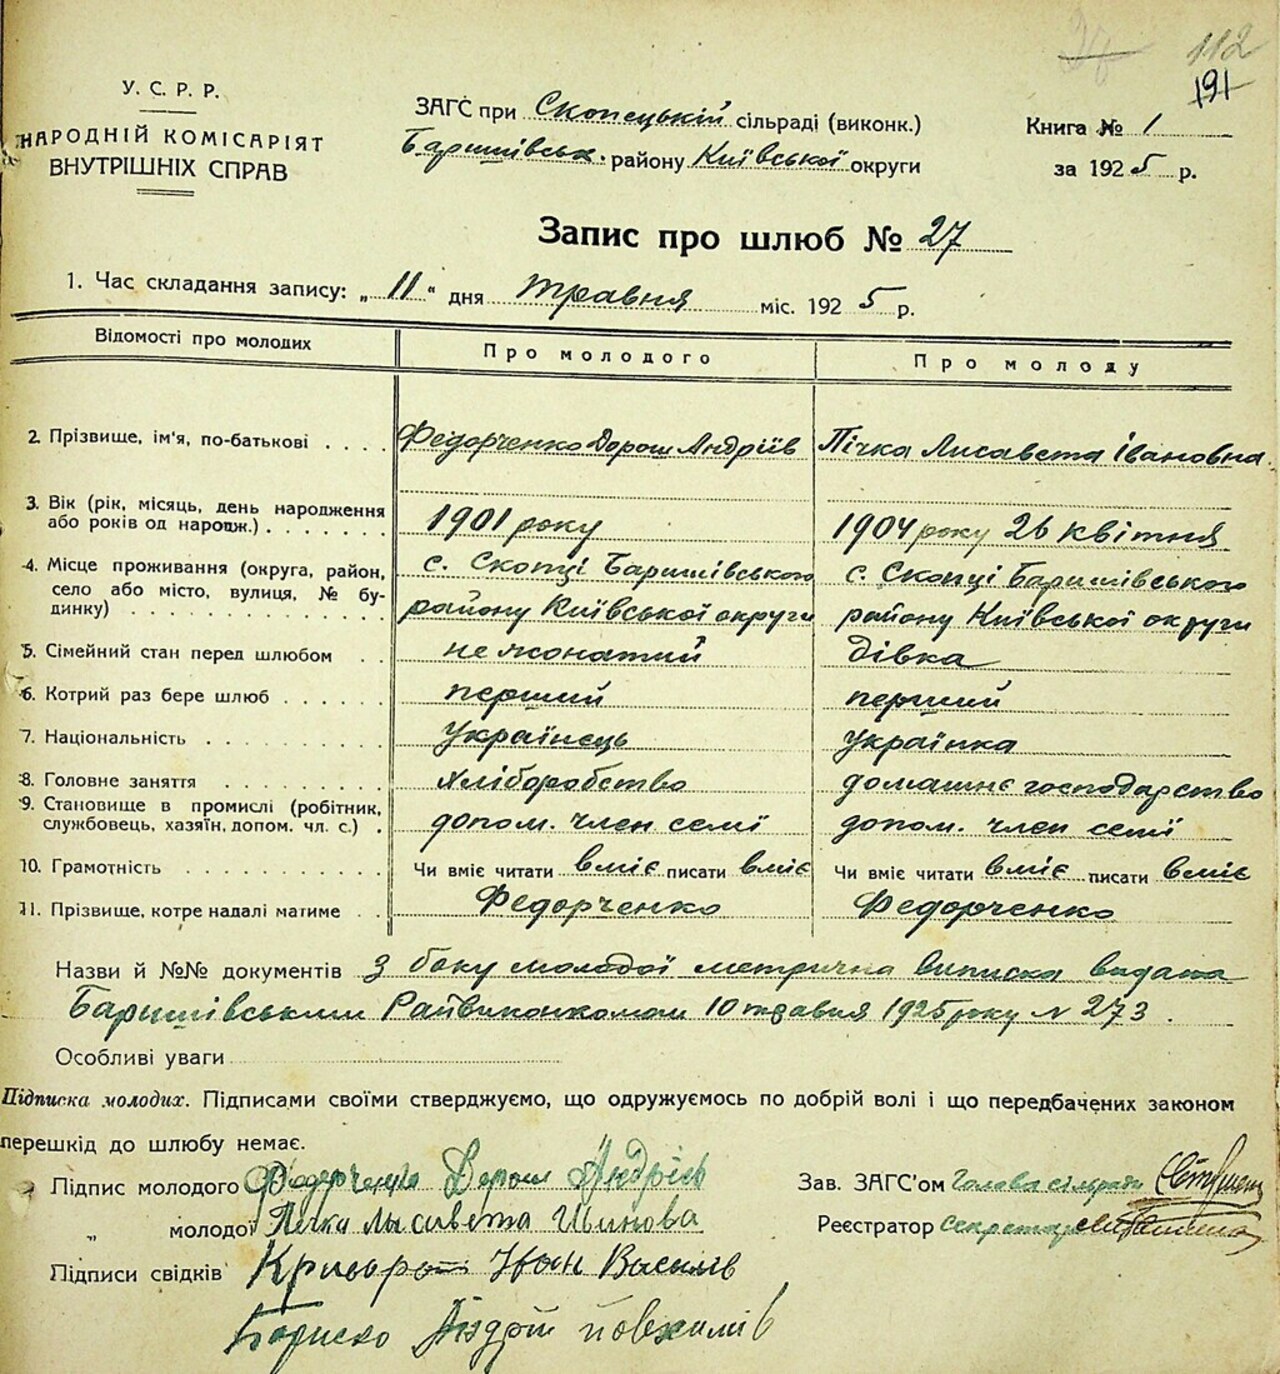 112
191
У. С. Р. Р.
НАРОДНІЙ КОМІСАРІЯТ
ВНУТРІШНІХ СПРАВ
ЗАГС при Скопецькій сільраді (виконк.)
Баришівськ. району Київської округи
Книга № 1
за 1925 р.
Запис про шлюб № 27
1. Час складання запису: „11" дня травня міс. 1925 р.
Відомості про молодих Про молодого Про молоду
2. Прізвище, ім'я, по-батькові . . . . Федорченко Дорош Андріїв Пічка Лисавета Івановна
3. Вік (рік, місяць, день народження
або років од народж.) . . . . . . . 1901 року 1904 року 26 квітня
4. Місце проживання (округа, район, с. Скопці Баришівського с. Скопці Баришівського
село або місто, вулиця, № бу-
динку) . . . . . . . . . . . району Київської округи району Київської округи
5. Сімейний стан перед шлюбом . . не жонатий дівка
6. Котрий раз бере шлюб . . . . . . перший перший
7. Національність . . . . . . . . . Українець українка
8. Головне заняття . . . . . . . . . хліборобство домашнє господарство
9. Становище в промислі (робітник,
службовець, хазяїн, допом. чл. с.) . допом. член семї допом. член семї
10. Грамотність . . . . . . . . . . . Чи вміє читати вміє писати вміє Чи вміє читати вміє писати вміє
11. Прізвище, котре надалі матиме . . Федорченко Федорченко
Назви й №№ документів з боку молодої метрична виписка видана
Баришівським Райвиконкомом 10 травня 1925 року № 273.
Особливі уваги
Підписка молодих. Підписами своїми стверджуємо, що одружуємось по добрій волі і що передбачених законом
перешкід до шлюбу немає.
Підпис молодого Федорченко Дорош Андріїв
„ молодої Печка Лисавета Иванова
Підписи свідків Иван Василів
Бориско Андрій
Зав. ЗАГС'ом Голова сільради
Реєстратор Секретар